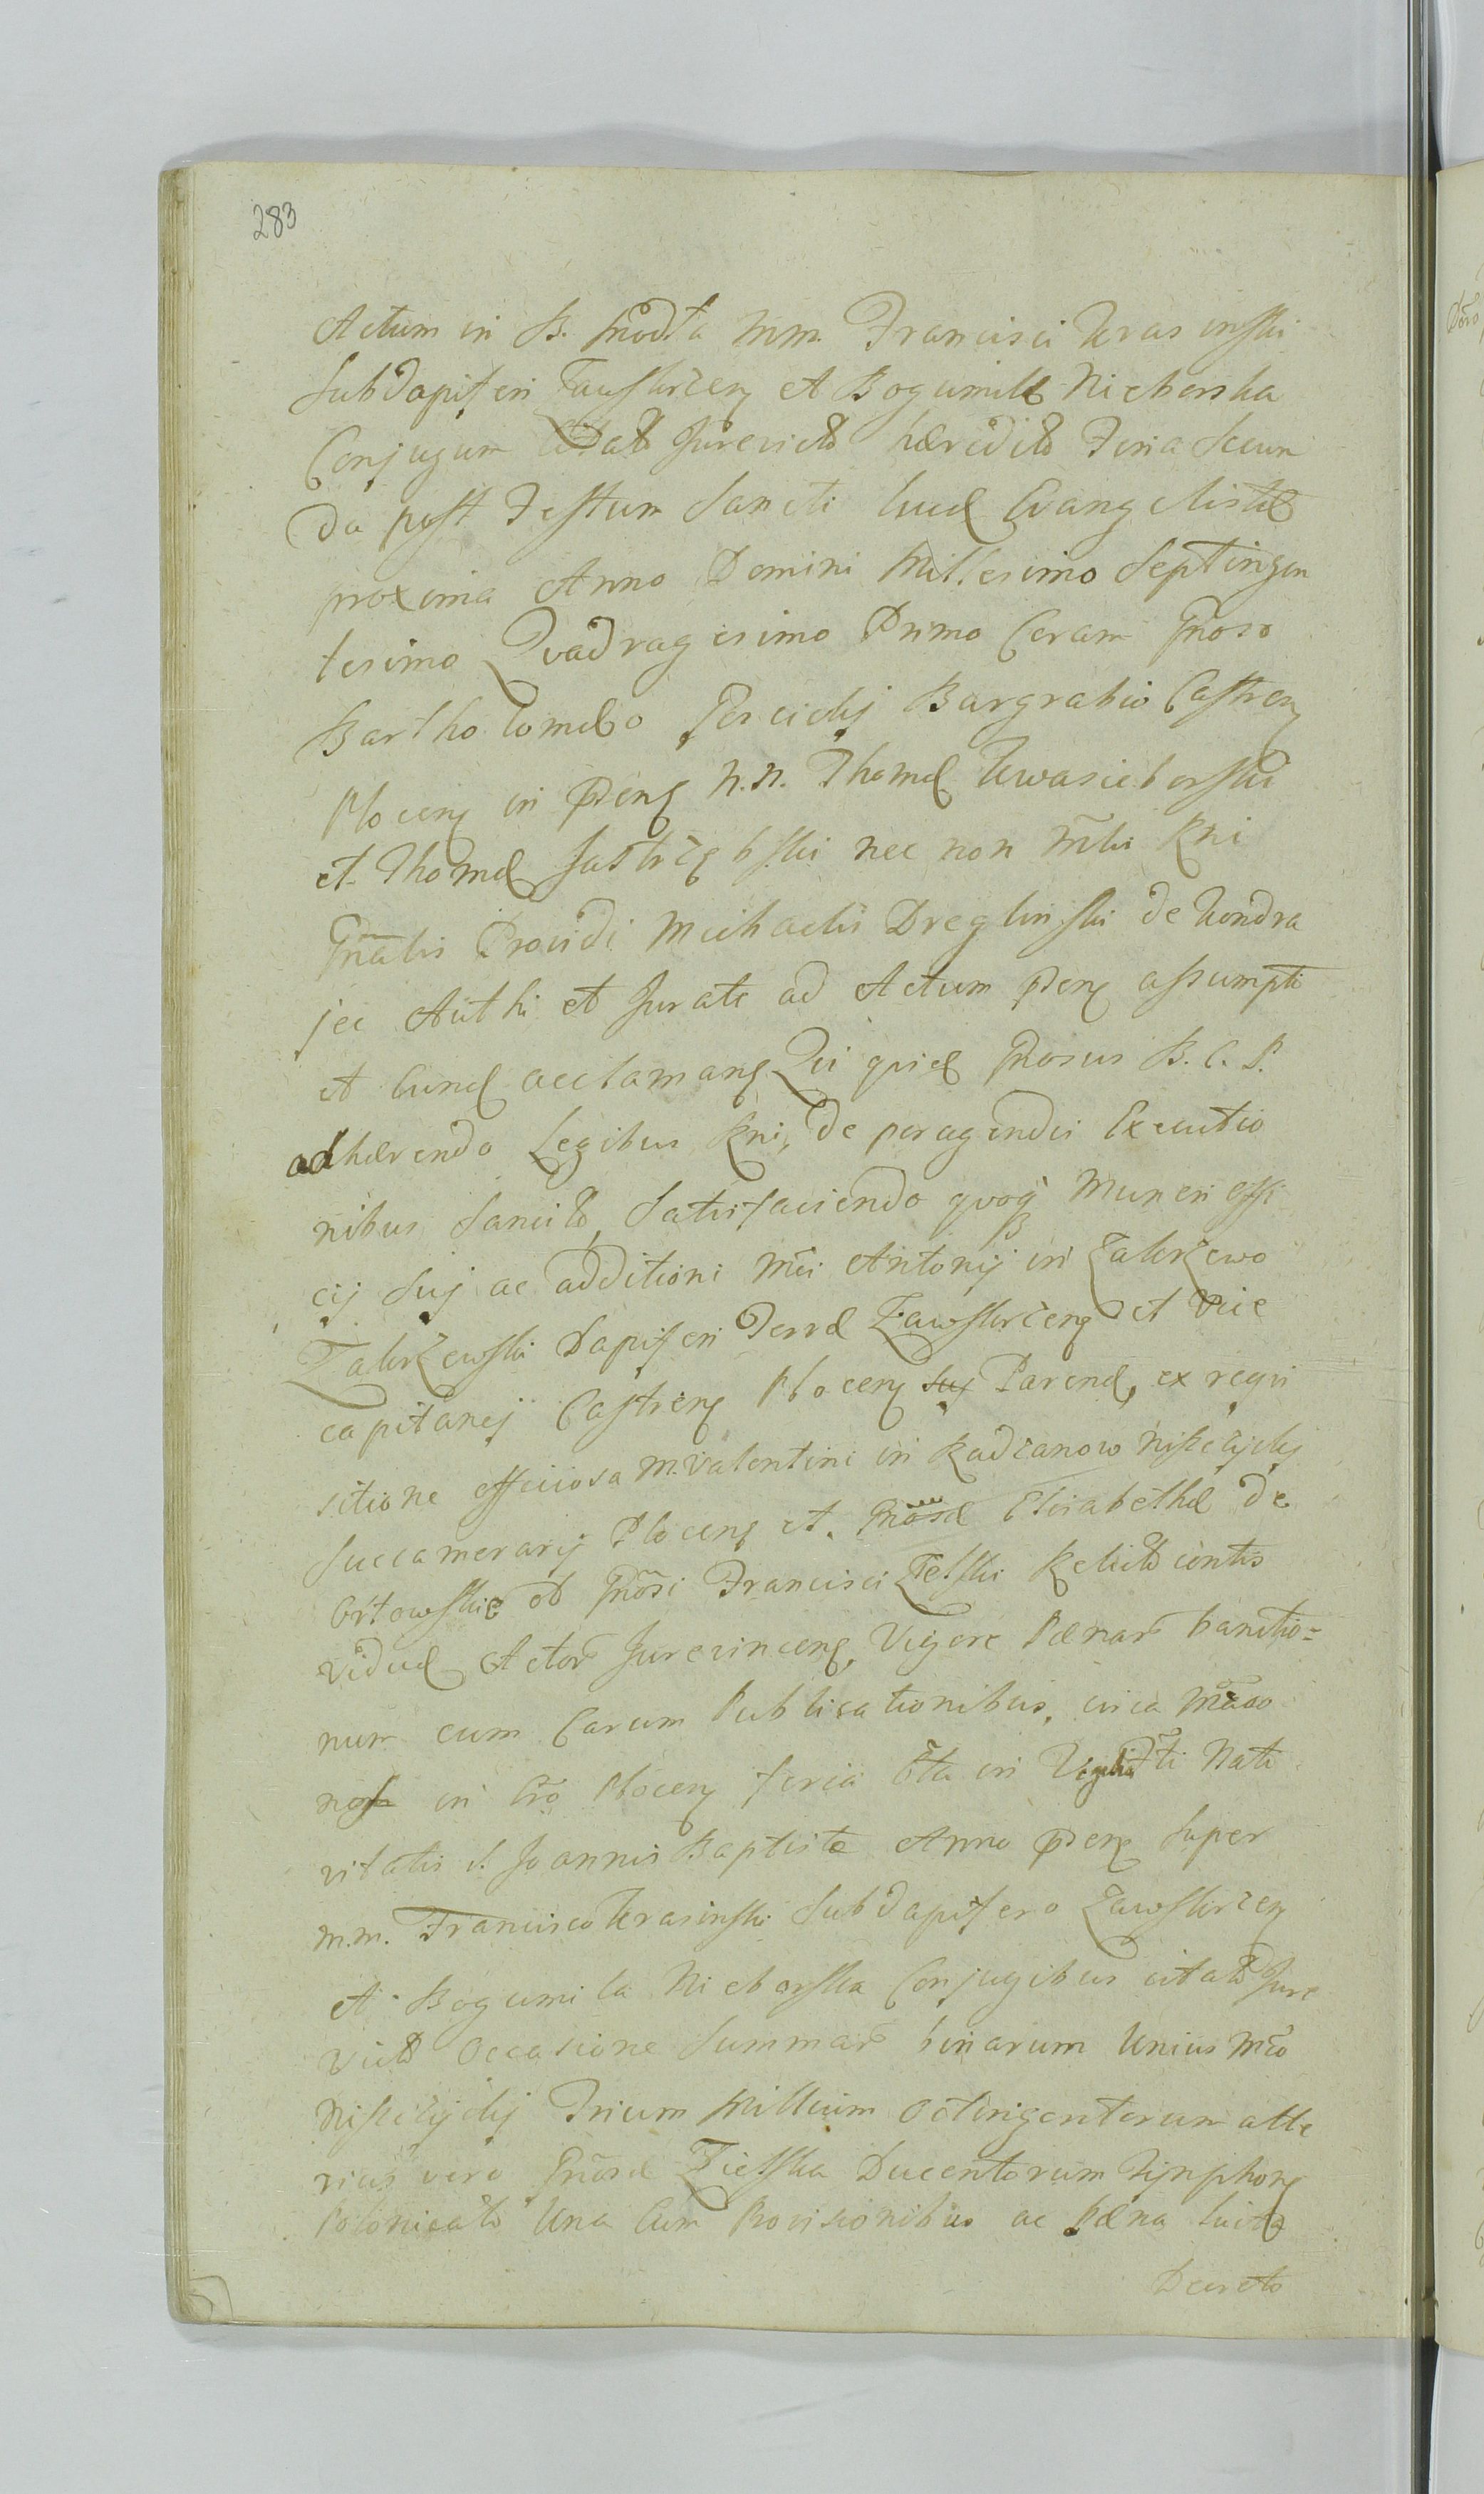 283
Actum in B. MM. Francisci Krasinski
Subdapiferi Zawskrzen et Bogumilæ Nieborska
Conjugum Citat Jurevict hæredit Feria Secun
da post Festum Sancti Lucæ Evangelistæ
proxima Anno Domini Millesimo Septingen
tesimo Quadragesimo Primo Coram Gnoso
Bartholomæo Burgrabio Castren
Plocen in præn N.N. Thomæ Kwasieborski
et Thomæ Jastrzębski nec non Mlis Rni
Gnalis Providi Michaelis Dreglinski de Kondra
jec Authi et Jurati ad Actum præn assumpti
et Cunæ acclaman Qui quid Gnosus B. C. P.
adhærendo Legibus Rni, de peragendis Executio
nibus Sancit, Satisfaciendo quoq Muneri offi
cij Suj ac additioni Mci Antonij in Zakrzewo
Zakrzewski Dapiferi Terræ Zawskrzen et Vice
capitanej Castren Plocen suj Parend, ex requi
sitione officiosa M. Valentini in Radzanow Niszczycky
Succamerarij Plocen et Gnosæ Elisabethæ de
Ostowskie Gnosi Francisci Zielski Relict contis
viduæ Actor Jurevincen, Vigore Pænar banitio=
num cum Earum Publicationibus, circa
in Cro Plocen feria in Vigilia Fti Nati
vitatis S. Joannis Baptistæ Anno præn Super
M.M. Francisco Krasinski Subdapifero Zawskrzen
et Bogumila Nieborska Conjugibus citat Jure
vict Occasione Summar binarum Unius Mco
Niszczycky Trium Millium Octingentorum alte
rius vero Gnosæ Zielska Ducentorum Tynphon
Polonicat Una Cum Provisionibus ac Pæna luita
Decreto